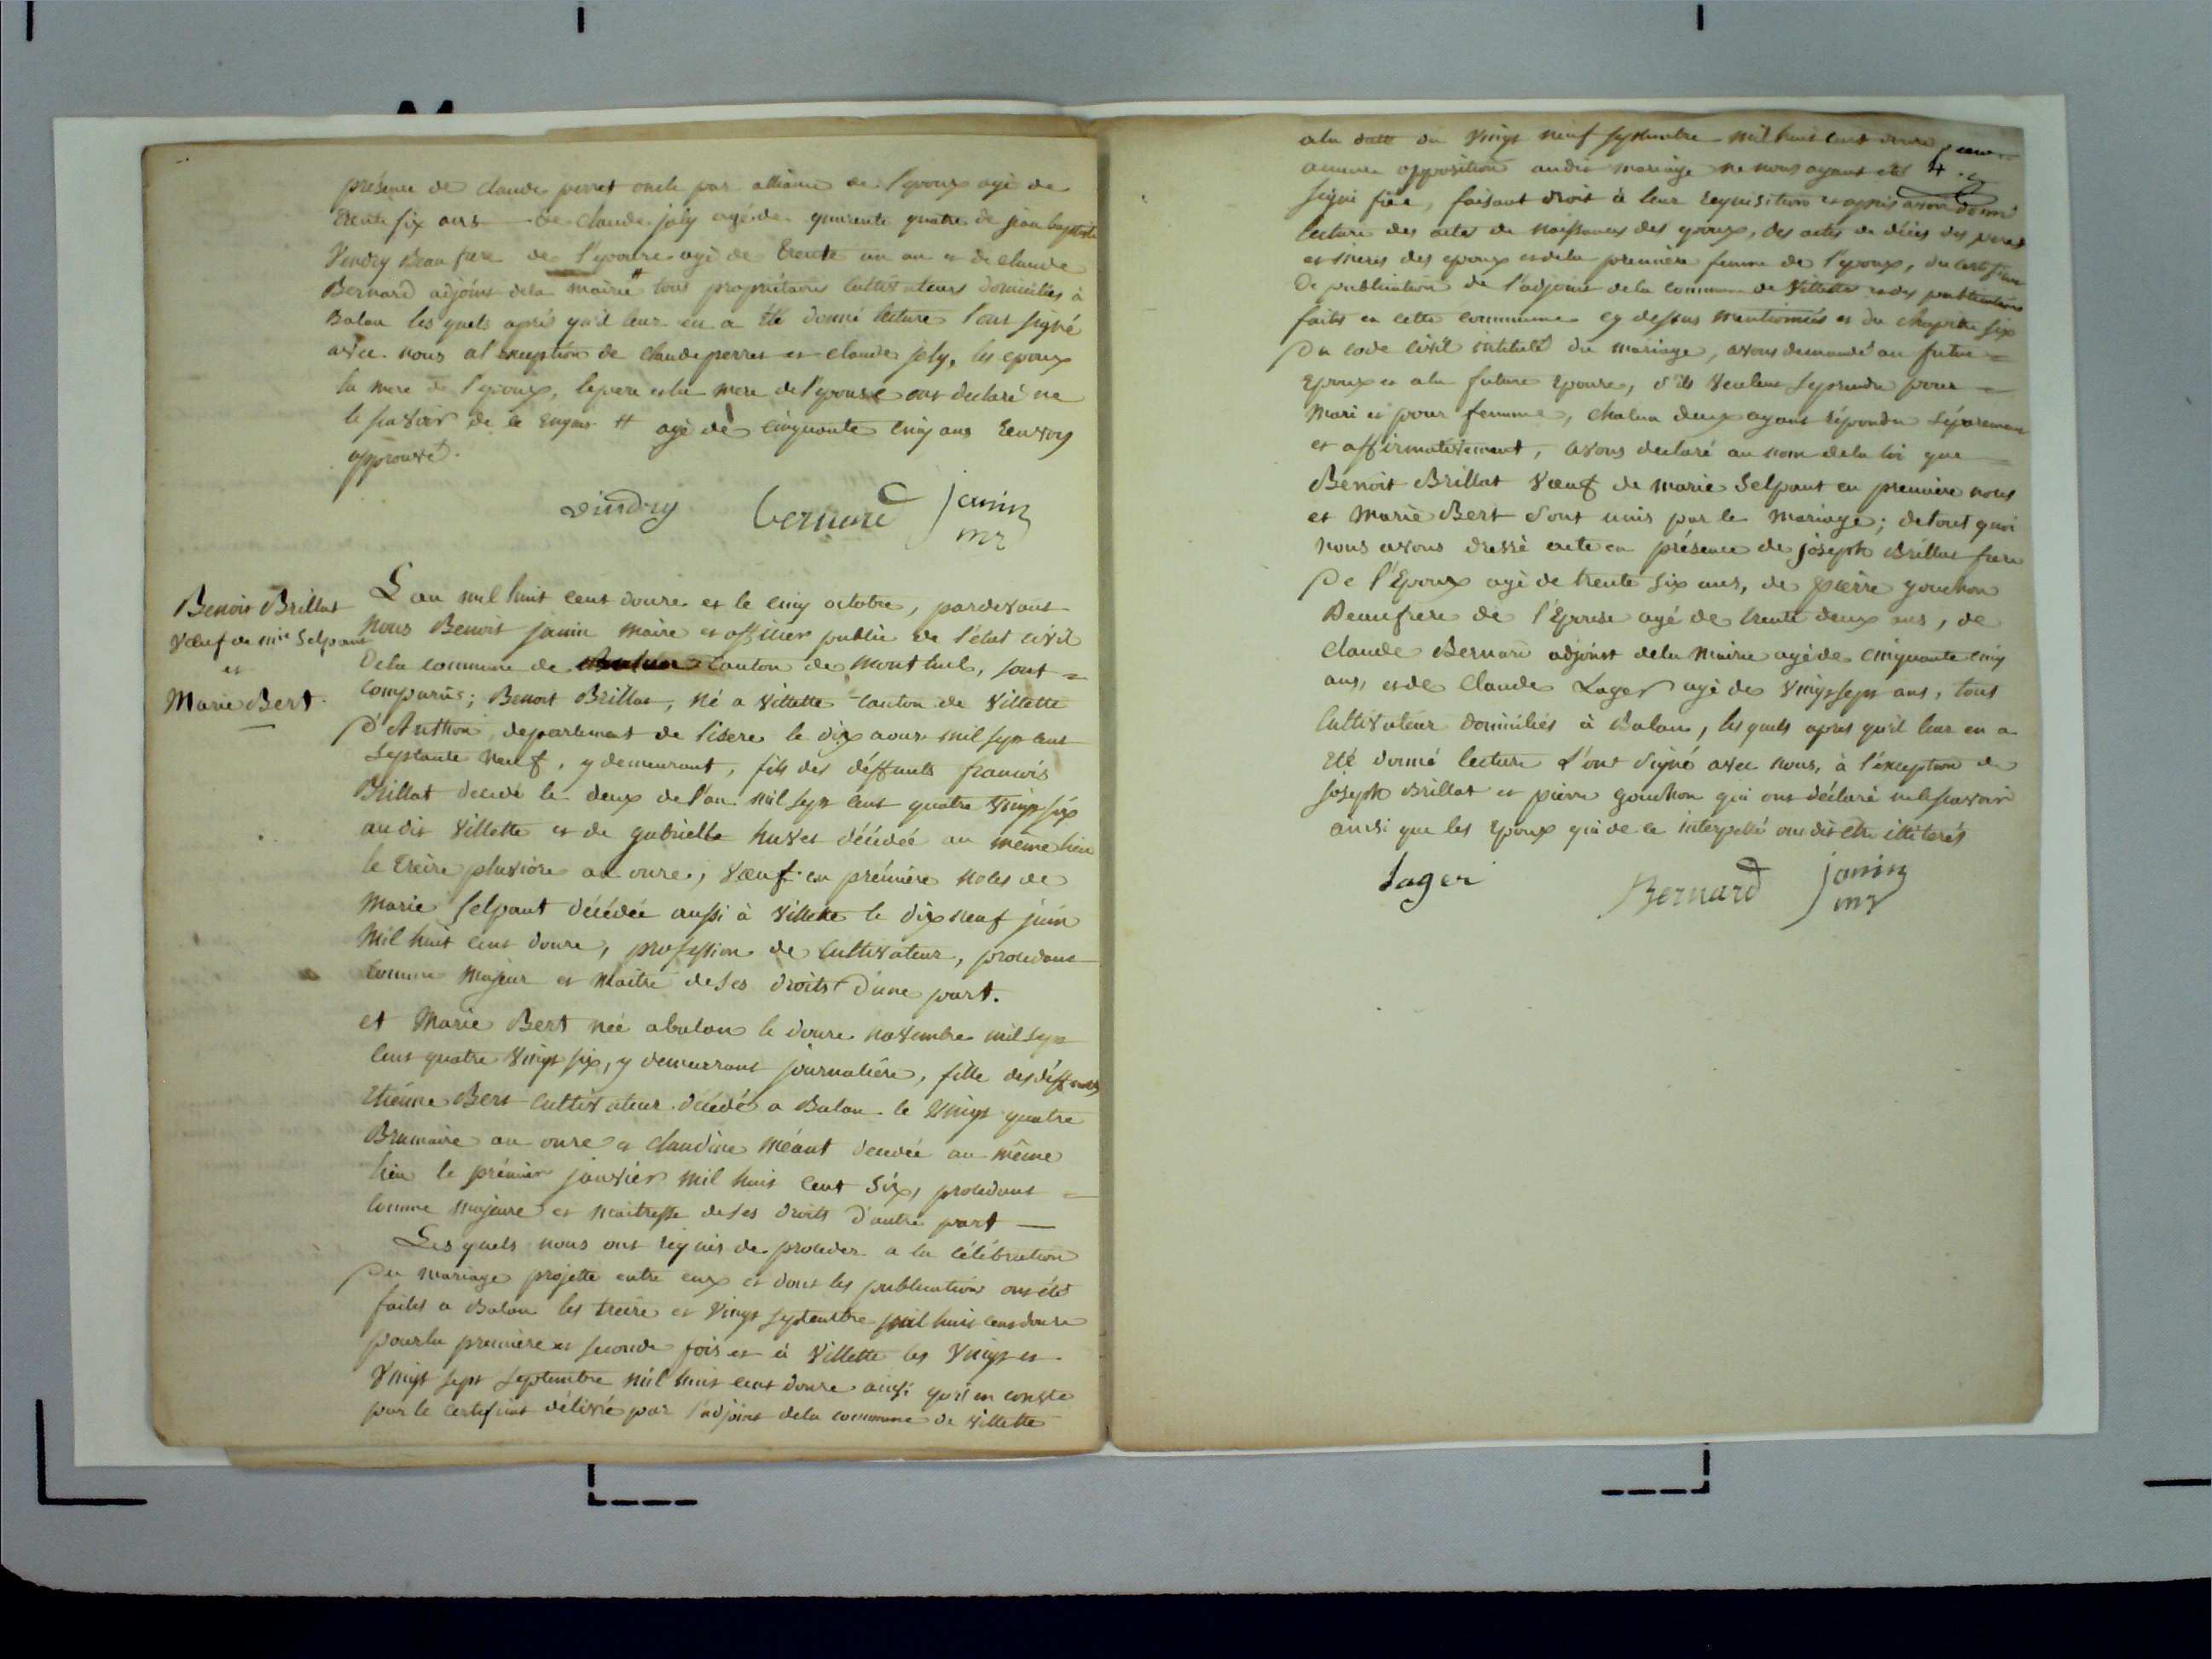 présence de claude perret oncle par alliance de l'epoux agé de
trente six ans de claude joly agé de quarente quatre de jean baptiste
Vindry Beau frere de l'epouse agé de trente un an et de claude
Bernard adjoint dela mairie # tous propriétaires cultivateurs domiciliés à
Balan les quels aprés qu'il leur en a été donné lecture l'ont signé
avec nous al exception de claude perret et claude joly, les epoux
la mere de l'epoux, le pere et la mere de l'epouse ont declaré ne
le savoir de ce enquis # agé de cinquante cinq ans renvoy
approuvé.
vindry Bernard janin
mr
Benoit Brillat
Vœuf de mie Selpant
et
Marie Bert.
L'an mil huit cent douze et le cinq octobre, pardevant
Nous Benoit janin maire et officier public de l'état civil
Dela commune de Balan canton de Montluel, sont =
Comparus; Benoit Brillat, Né a Villette canton de Villette
D'Anthon, departement de l'isere le dix aout mil sept cent
Septante neuf, y demeurant, fils des déffunts francois
Brillat décédé le deux de l'an mil sept cent quatre vingt six
au dit Villette et de gabrielle huvet décédée au même lieu
le treize pluviose an onze, Vœuf en première noces de
Marie Selpant décédée aussi à Villette le dix neuf juin
Mil huit cent douze, profession de Cultivateur, procedant
Comme Majeur et Maitre deses droits d'une part.
et Marie Bert née abalan le douze novembre mil sept
Cent quatre Vingt six, y demeurant journalière, fille des déffunts
Etienne Bert Cultivateur décédé a Balan le Vingt quatre
Brumaire an onze et claudine Méant décédée au même
lieu le prémier janvier Mil huit Cent Six, procedant =
Comme majeure et maitresse deses droits d'autre part
Les quels nous ont requis de proceder a la célébration
Du mariage projetté entre eux et dont les publication ont été
faites a Balan les treize et Vingt septembre mil huit cent douze
pour la premiere et seconde fois et à Villette les Vingt et
Vingt sept septembre mil huit cent douze ainsi qu'il en conste
par le certificat délivré par l'adjoint dela commune de Villette
ala datte du Vingt neuf septembre mil huit cent douze
aucune opposition audit mariage ne nous ayant été
signi fiée, faisant droit à leur requisition et aprés avoir donné
lecture des actes de naissances des epoux, des actes de décès des peres
et meres des epoux et dela premiere femme de l'epoux, du certificat
De publication de l'adjoint dela commune de Villette et des publications
faites en cette commune cy dessus mentionnés et du chapitre six
Du code Civil intitulé du mariage, avons demandé au futur =
Epoux et ala future Epouse, s'ils veulent se prendre pour =
Mari et pour femme, chacun deux ayant répondu séparement
et affirmativement, avons declaré au nom dela loi que
Benoit Brillat Vœuf de marie Selpant en première nous
et Marie Bert sont unis par le mariage; de tout quoi
Nous avons dressé acte en présence de joseph Brillat frere
De l'Epoux agé de trente six ans, de pierre gouchon
Beaufrere de l'Epouse agé de trente deux ans, de
Claude Bernard adjoint dela Mairie agé de cinquante cinq
ans, et de Claude Lager agé de Vingt sept ans, tous
Cultivateur domiciliés à Balan, les quels apres qu'il leur en a
Eté donné lecture l'ont Signé avec nous, à l'éxception de
Joseph Brillat et pierre gouchon qui ont déclaré ne le scavoir
ainsi que les Epoux qui de ce interpellé ont dit etre illiterés
Lager Bernard janin
mr